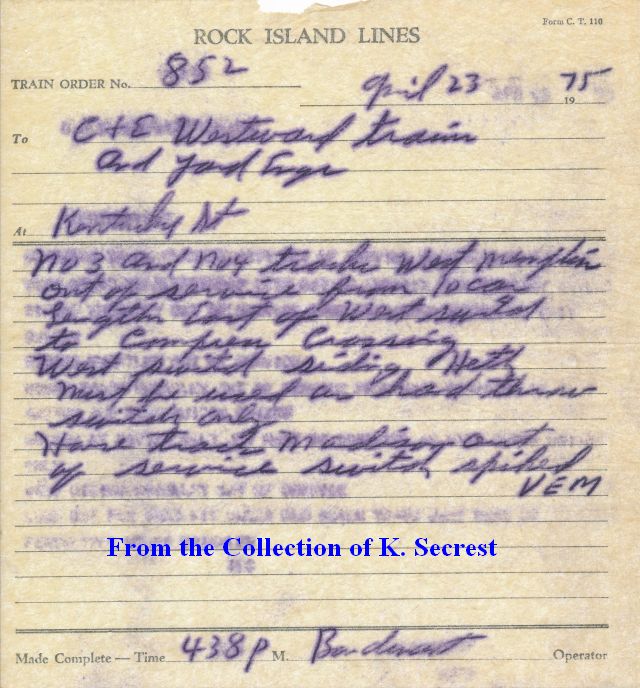 Form C. T. 110
ROCK ISLAND LINES
TRAIN ORDER No. 852
April 23 1975
To C+E Westward train
and yard Engr
At Kentucky St
No 3 and No 4 tracks West Memphis
out of service from 10 car
lengths East of West switch
to Compress Crossing
West switch siding Heth
Must be used as hand throw
switch only
House track Madison out
of service switch spiked
VEM
From the Collection of K. Secrest
Made Complete — Time 438 P M. Operator